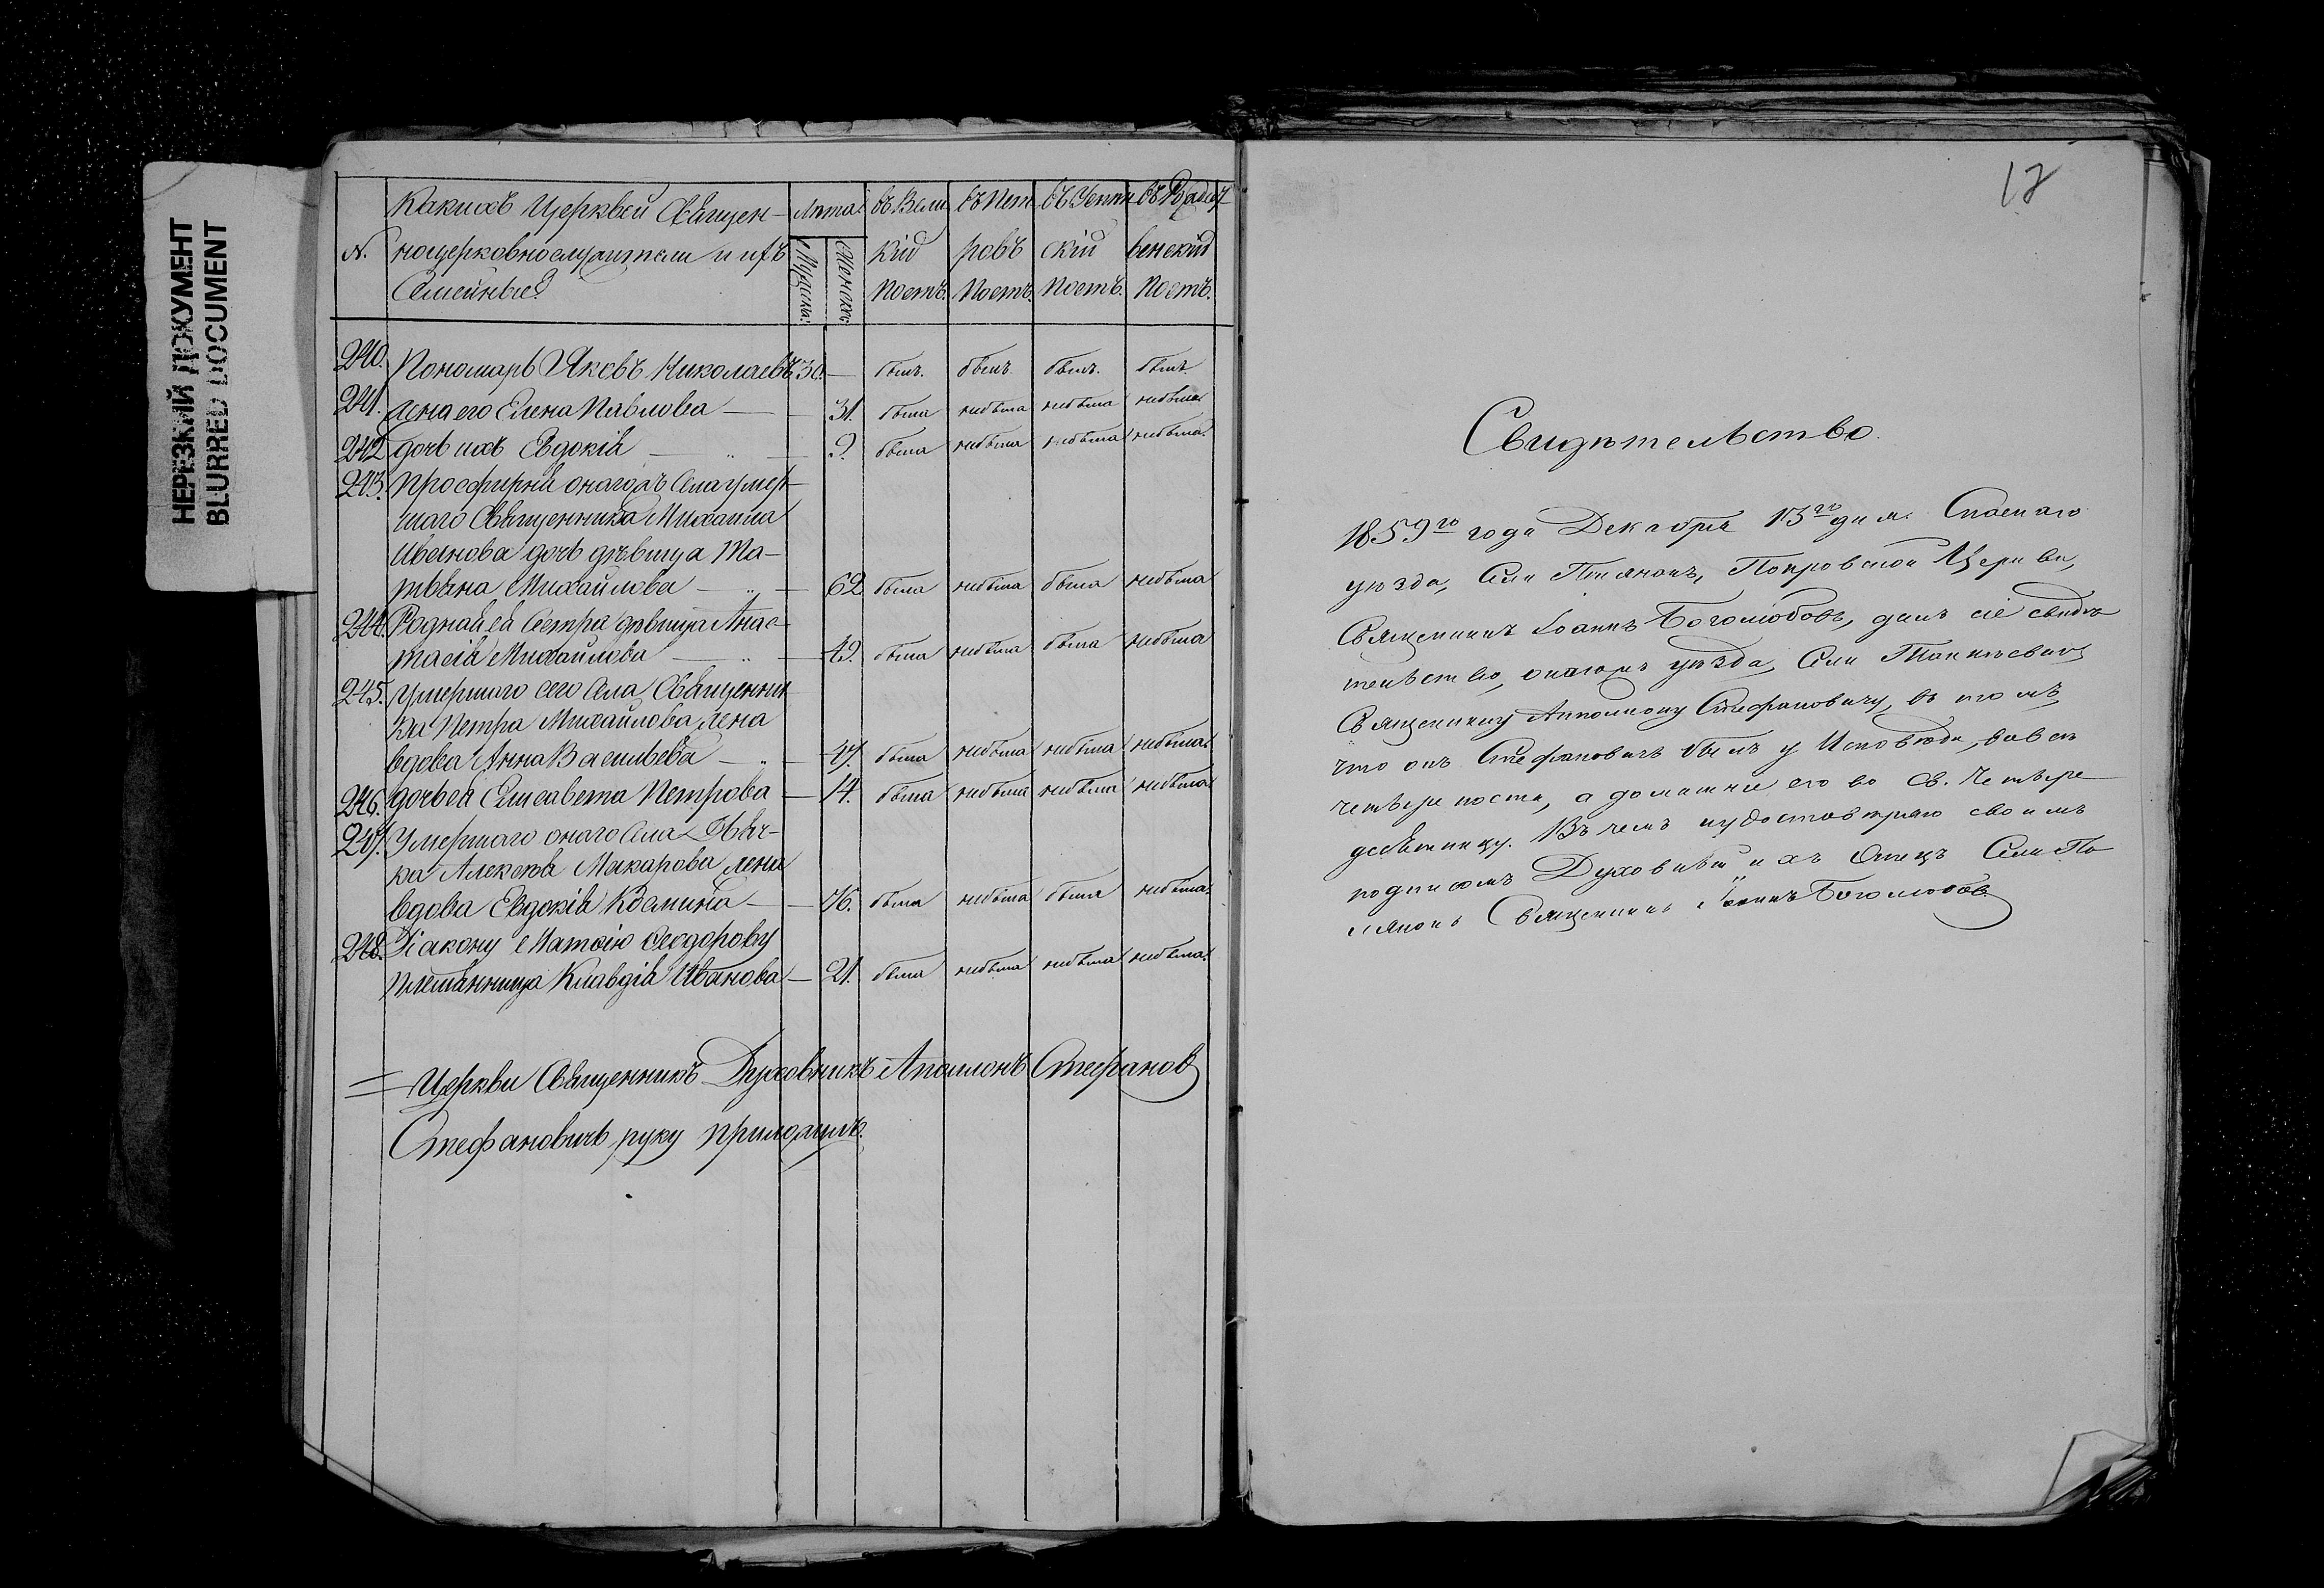 НЕРЕЗКИЙ ДОКУМЕНТ
BLURRED DOCUMENT
№. Какихъ Церквей Священ-
ноцерковнослужители и ихъ
Семейные.
Лѣта
Мужска:
Женскъ:
въ Вели
кій
постъ.
въ Пет
ровъ
постъ.
въ Успен
скій
постъ.
въ Рождест
венскій
постъ.
240. Пономарь Яковъ Николаевъ 30. — былъ. былъ. былъ. былъ.
241. жена его Елена Павлова — — 31. была небыла небыла небыла
242. дочь ихъ Евдокія — „ — 9. была небыла небыла небыла.
243. Просфирня онагожъ Села умер-
шаго Священника Михаила
Иванова дочь дѣвица Та-
тьяна Михайлова — „ — 62 была небыла была небыла
244. Родная ея Сестра дѣвица Анас-
тасія Михайлова — „ — 49. была небыла была небыла
245. Умершаго сего Села Священни
ка Петра Михайлова жена
вдова Анна Васильева — „ — 47. была небыла небыла небыла.
246. дочь ея Елисавета Петрова — 14. была небыла небыла небыла
247. Умершаго онаго Села Дьяч-
ка Алексѣя Макарова жена
вдова Евдокія Козмина — — 76. была небыла была небыла.
248. Діакону Матѳію Ѳеодорову
племянница Клавдія Иванова — 21. была небыла небыла небыла.
Церкви Священникъ Духовникъ Аполлонъ Стефанов
Стефановичъ руку приложилъ.
12
Свидѣтельство.
1859го года Декабря 13го дня. Спаскаго
уѣзда, Села Покровской Церкви,
Священникъ Іоаннъ Боголюбовъ, далъ сіе свидѣ
тельство, уѣзда, Села
Священнику Апполлону Стефановичу, въ томъ
что онъ Стефановичъ былъ у Исповѣди, во всѣ
четыре поста, а домашніе его во Св. Четыре
десятницу. Въ чемъ и удостовѣряю своимъ
подписомъ Духовный ихъ Отецъ Села По
ляновъ Священникъ Іоаннъ Боголюбовъ